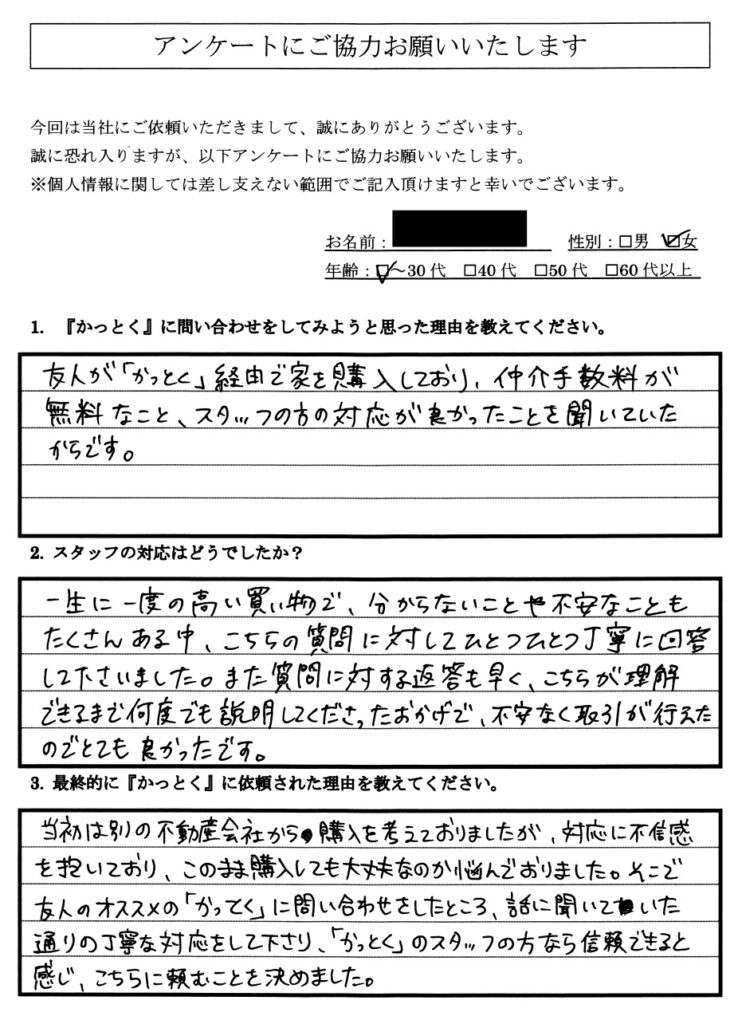 アンケートにご協力お願いいたします
今回は当社にご依頼いただきまして、誠にありがとうございます。
誠に恐れ入りますが、以下アンケートにご協力お願いいたします。
※個人情報に関しては差し支えない範囲でご記入頂けますと幸いでございます。
お名前： 性別：□男 ☑女
年齢：☑～30代 □40代 □50代 □60代以上
1. 『かっとく』に問い合わせをしてみようと思った理由を教えてください。
友人が「かっとく」経由で家を購入しており、仲介手数料が
無料なこと、スタッフの方の対応が良かったことを聞いていた
からです。
2. スタッフの対応はどうでしたか？
一生に一度の高い買い物で、分からないことや不安なことも
たくさんある中、こちらの質問に対してひとつひとつ丁寧に回答
して下さいました。また質問に対する返答も早く、こちらが理解
できるまで何度でも説明してくださったおかげで、不安なく取引が行えた
のでとても良かったです。
3. 最終的に『かっとく』に依頼された理由を教えてください。
当初は別の不動産会社から購入を考えておりましたが、対応に不信感
を抱いており、このまま購入しても大丈夫なのか悩んでおりました。そこで
友人のオススメの「かってく」に問い合わせをしたところ、話に聞いていた
通りの丁寧な対応をして下さり、「かっとく」のスタッフの方なら信頼できると
感じ、こちらに頼むことを決めました。